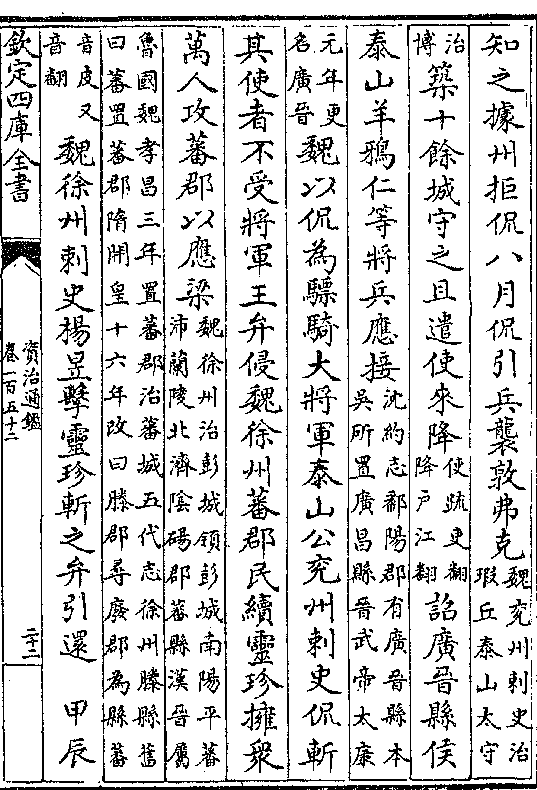 知之據州拒侃八月侃引兵襲敦弗克魏兖州刺史治瑕丘泰山太守
治博築十餘城守之且遣使來降使疏吏翻降戶江翻詔廣晉縣侯
泰山羊鴉仁等將兵應接沈約志鄱陽郡有廣晉縣本吳所置廣昌縣晉武帝太康
元年更名廣晉魏以侃為驃騎大將軍泰山公兖州刺史侃斬
其使者不受將軍王弁侵魏徐州蕃郡民續靈珍擁衆
萬人攻蕃郡以應梁魏徐州治彭城領彭城南陽平蕃沛蘭陵北濟陰碭郡蕃縣漢晉屬
魯國魏孝昌三年置蕃郡治蕃城五代志徐州滕縣舊曰蕃置蕃郡隋開皇十六年改曰滕郡尋廢郡為縣蕃
音皮又音翻魏徐州刺史楊昱擊靈珍斬之弁引還 甲辰
欽定四庫全書
資治通鑑
卷一百五十二
二十二